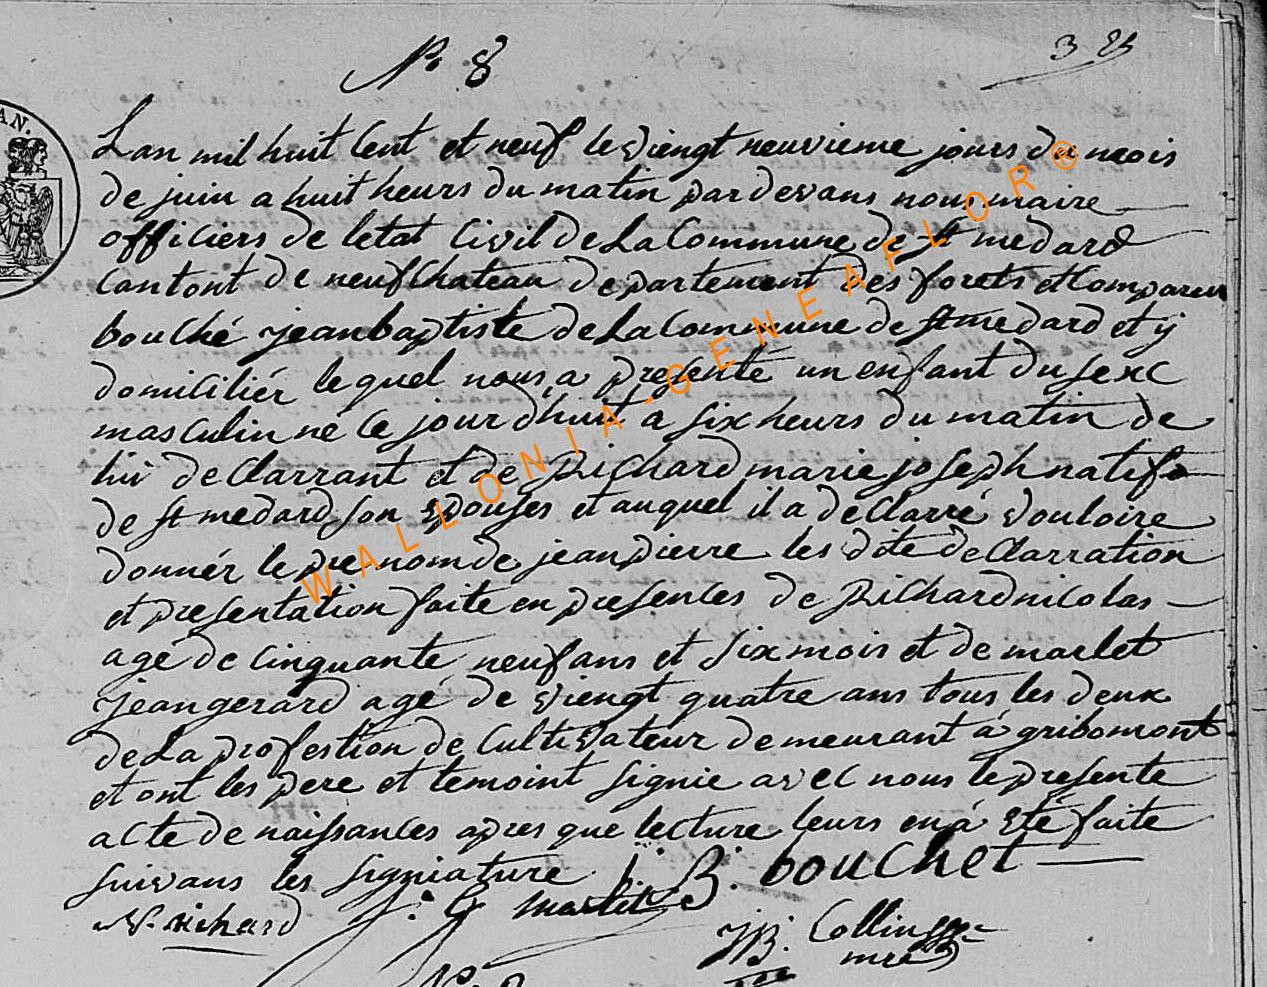 N° 8
325
AN.
Lan mil huit Cent et neuf le viengt neuvieme jours du mois
de juin a huit heurs du matin pardevans nous maire
officiers de letat Civil de La Commune de St medard
Cantont de neufchateau departement des forets et Comparent
bouché jean baptiste de La Commune de St medard et y
domiciliér le quel nous a presenté un enfant du sexe
masculin ne Ce jour dhuit a six heurs du matin de
lui declarrant et de Richard marie joseph natife
de St medard son epouses et auquel il a declarré vouloire
donnér le pre-nom de jean pierre les dite declarration
et presentation faite en presences de Richard nicolas
agé de Cinquante neuf ans et six mois et de marlet
jean gerard agé de viengt quatre ans tous les deux
de La profestion de Cultivateur demeurant a gribomont
et ont les pere et temoint signie avec nous le presente
acte de naissances apres que lecture leurs en á eté faite
suivans les signiature
j. B. bouchet
N. richard
j. G marlet
JB. Collin
mre
WALLONIA-GENEAFLOR®